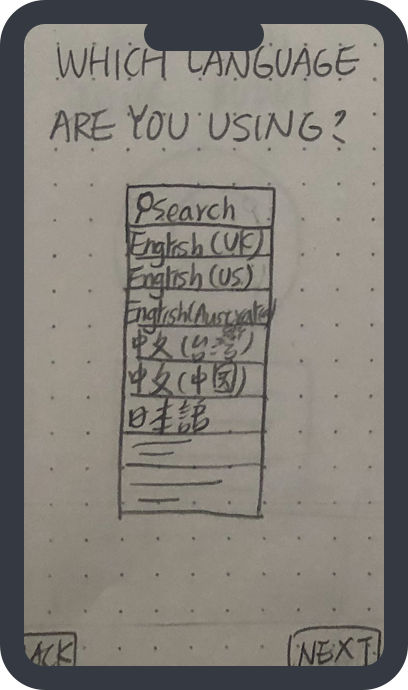 WHICH LANGUAGE
ARE YOU USING?
search
English (UK)
English (US)
English (Australia)
中文 (台湾)
中文 (中国)
日本語
ACK
NEXT